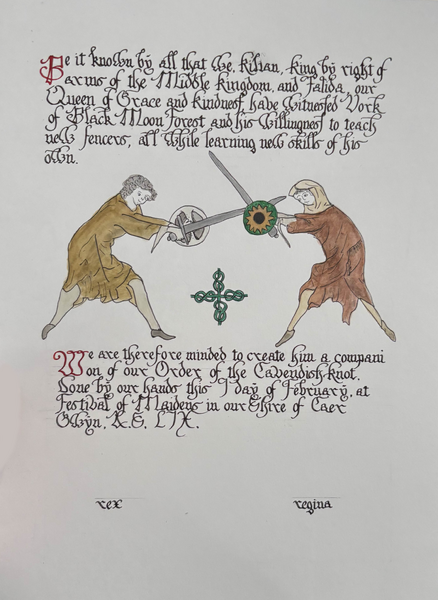 Be it known by all that We, Kilian, king by right of
arms of the Middle Kingdom, and Fahda, our
Queen of Grace and kindness, have witnessed Vork
of Black Moon Forest and his willingness to teach
new fencers, all while learning new skills of his
own.
We are therefore minded to create him a compani
on of our Order of the Cavendish Knot.
Done by our hands this 7 day of February, at
Festival of Maidens in our Shire of Caer
Gwyn, A.S. LIX.
rex
regina